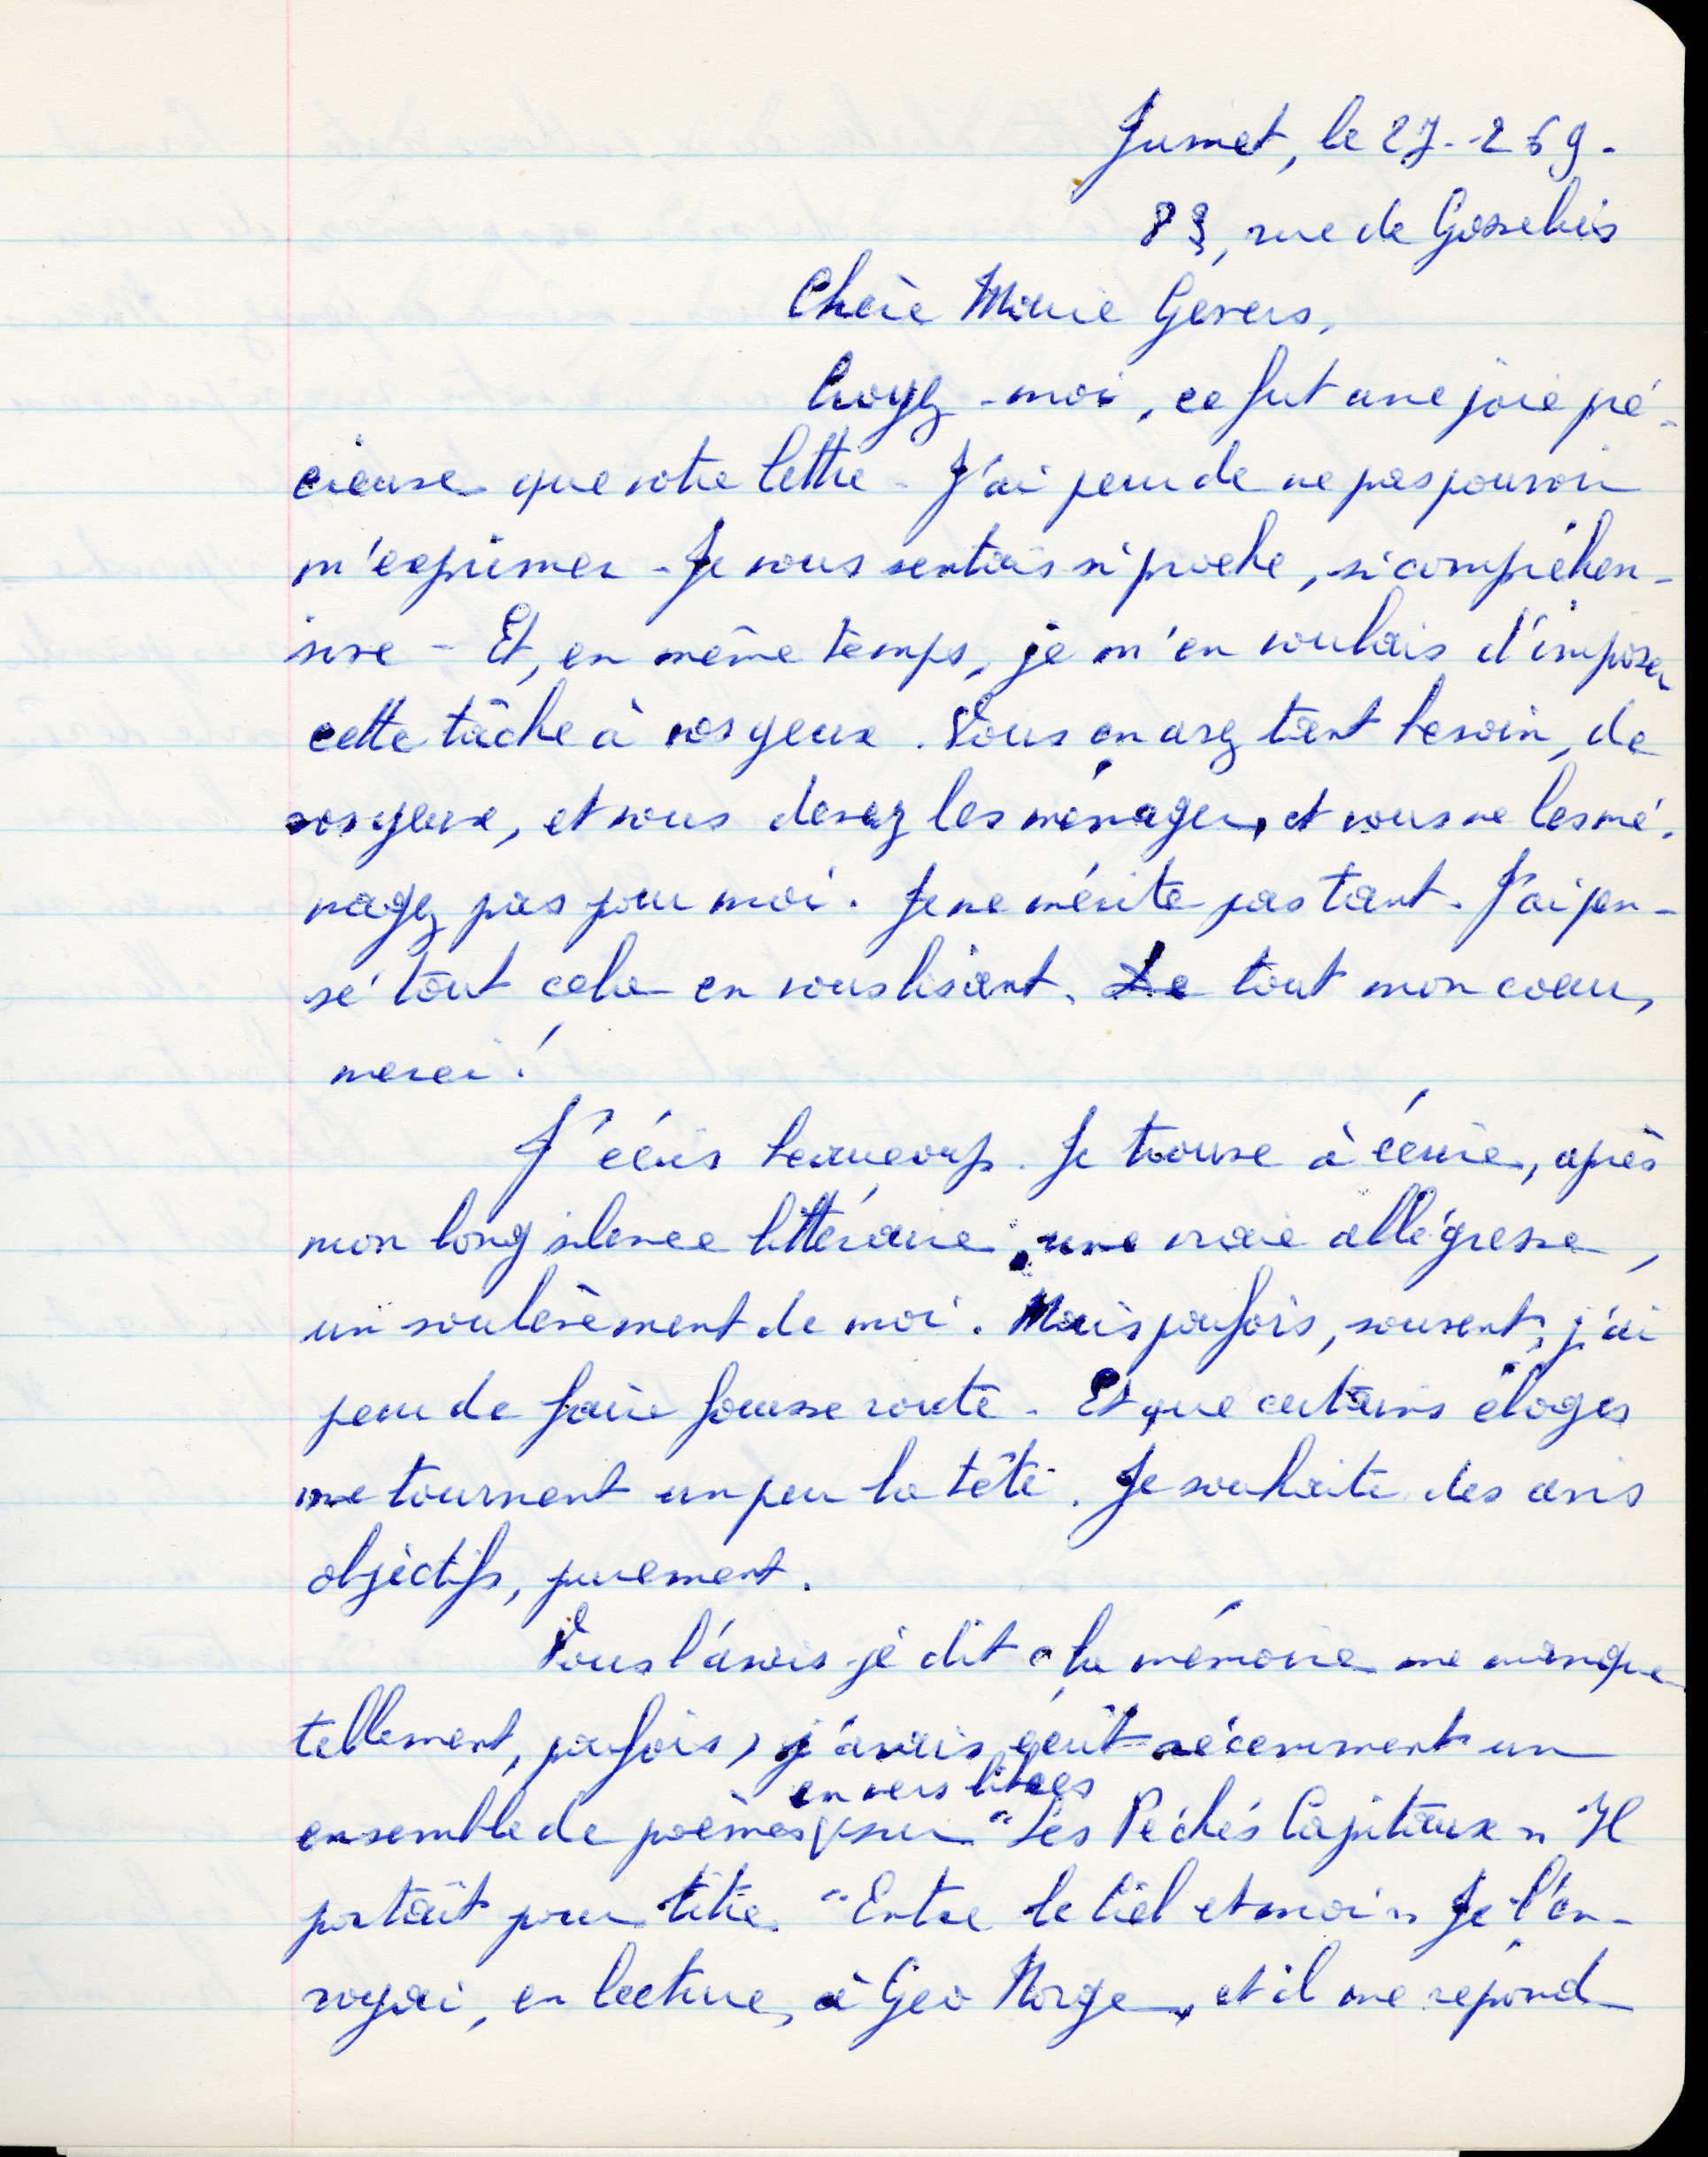 Jumet, le 27-2 69.
83, rue de Gosselies
Chère Marie Gevers,
Croyez-moi, ce fut une joie pré-
cieuse que votre lettre - J'ai peur de ne pas pouvoir
m'exprimer - Je vous sentais si proche, si compréhen-
sive - Et, en même temps, je m'en voulais d'imposer
cette tâche à vos yeux. Vous en avez tant besoin, de
vos yeux, et vous devez les ménager, et vous ne les mé-
nagez pas pour moi. Je ne mérite pas tant. J'ai pen-
sé tout cela en vous lisant. De tout mon coeur,
merci !
J'écris beaucoup. Je trouve à écrire, après
mon long silence littéraire, une vraie allégresse,
un soulèvement de moi. Mais parfois, souvent, j'ai
peur de faire fausse route - Et que certains éloges
me tournent un peu la tête. Je souhaite des avis
objectifs, purement.
Vous l'avais-je dit (la mémoire me manque
tellement, parfois) j'avais écrit récemment un
en vers libres
ensemble de poèmes sur "Les Péchés Capitaux" Il
portait pour titre "Entre le Ciel et moi" Je l'en-
voyai, en lecture, à Geo Norge, et il me répond